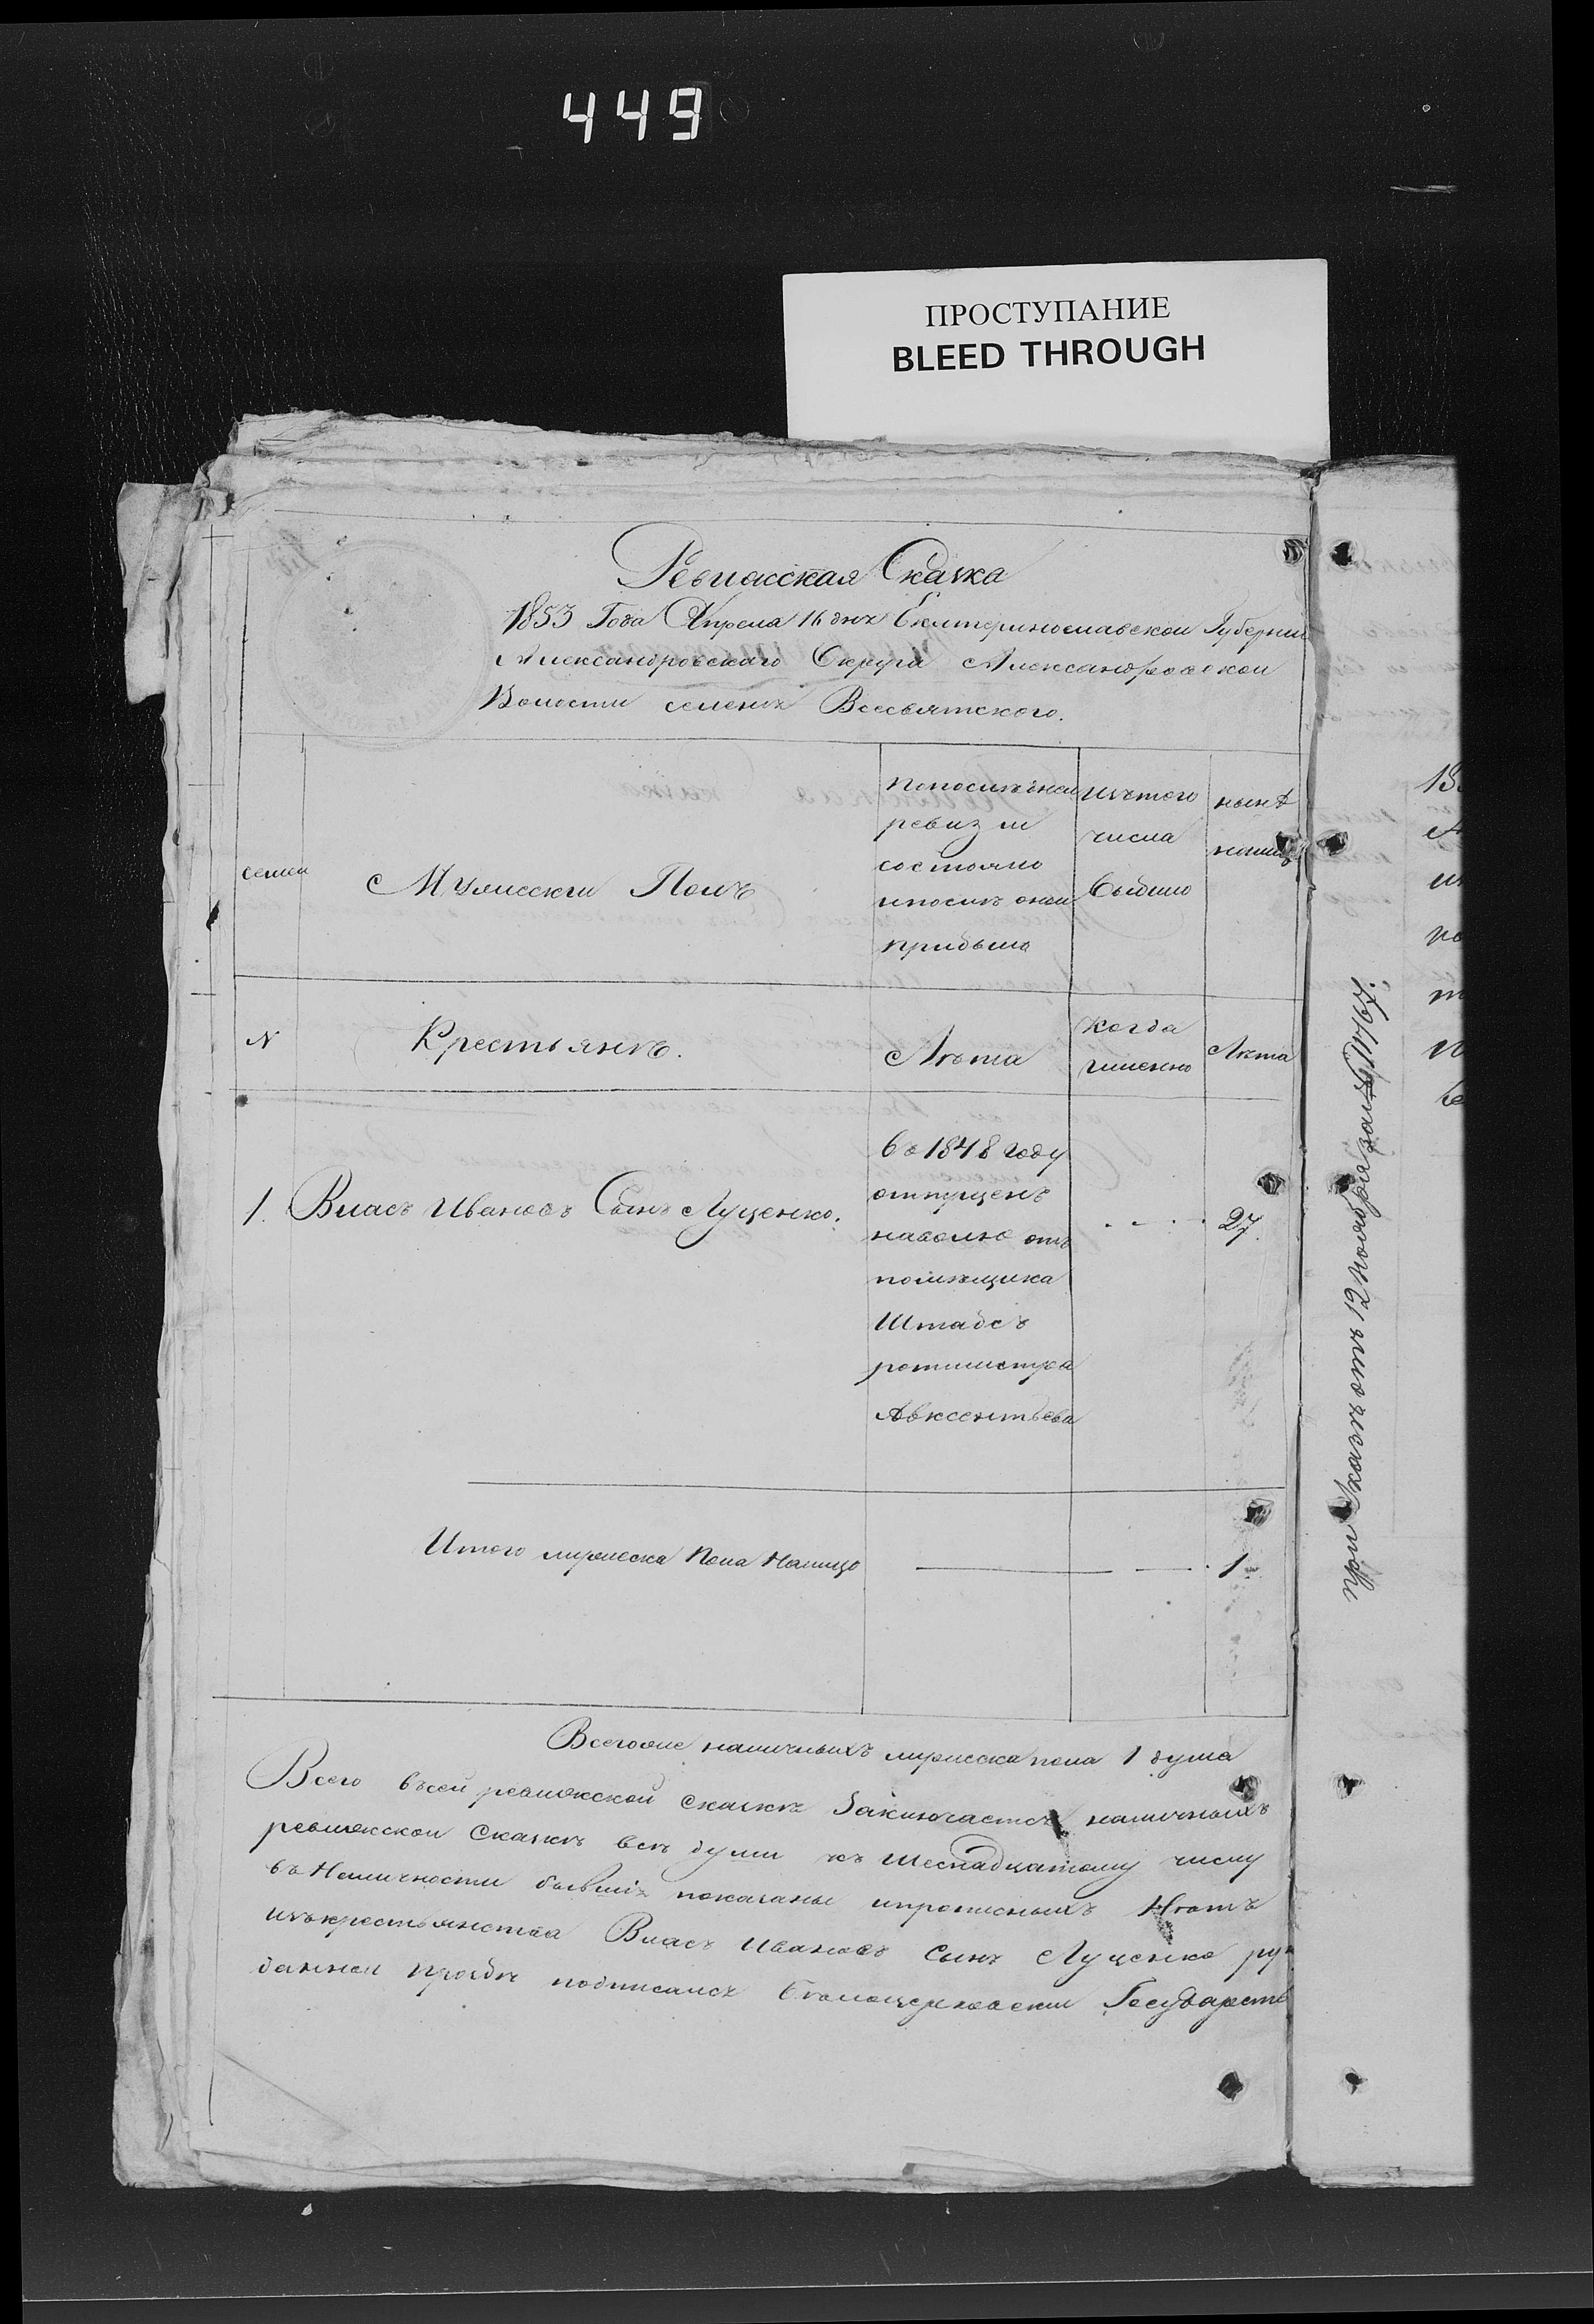 449
ПРОСТУПАНИЕ
BLEED THROUGH
Ревизская Сказка
1853 Года Апреля 16 дня Екатеринославской Губернии
Александровскаго Округа Александровской
Волости селенія Всесвятского.
семьи
Мужескій Полъ
Попоследней
ревизіи
состояло
ипослѣ оной
прибыло
изътого
числа
выбыло
нынѣ
налицо
N
Крестьянъ.
Лѣта
когда
именно
Лѣта
1. Власъ Ивановъ Сынъ Луценко.
въ 1848 году
отпущенъ
наволю отъ
помѣщика
Штабсъ
ротмистра
Авксентьева
27.
Итого мужеска Пола Налицо
1
Всегоже наличныхъ мужеска пола 1 душа
Всего всей ревизской сказкѣ Заключается наличныхъ
ревизской Сказкѣ всѣ души къ шеснадцатому числу
въ Наличности бывшіе показаны ипрописныхъ Нѣтъ
изъкрестьянства Власъ Ивановъ Сынъ Луценко ру
данной прозбѣ подписался Государств
при Указѣ отъ 12 ноября за № 7767.